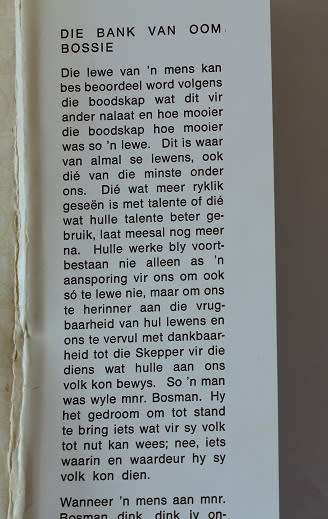 DIE BANK VAN OOM
BOSSIE
Die lewe van 'n mens kan
bes beoordeel word volgens
die boodskap wat dit vir
ander nalaat en hoe mooier
die boodskap hoe mooier
was so 'n lewe. Dit is waar
van almal se lewens, ook
dié van die minste onder
ons. Dié wat meer ryklik
geseën is met talente of dié
wat hulle talente beter ge-
bruik, laat meesal nog meer
na. Hulle werke bly voort-
bestaan nie alleen as 'n
aansporing vir ons om ook
só te lewe nie, maar om ons
te herinner aan die vrug-
baarheid van hul lewens en
ons te vervul met dankbaar-
heid tot die Skepper vir die
diens wat hulle aan ons
volk kon bewys. So 'n man
was wyle mnr. Bosman. Hy
het gedroom om tot stand
te bring iets wat vir sy volk
tot nut kan wees; nee, iets
waarin en waardeur hy sy
volk kon dien.
Wanneer 'n mens aan mnr.
Bosman dink, dink jy on-